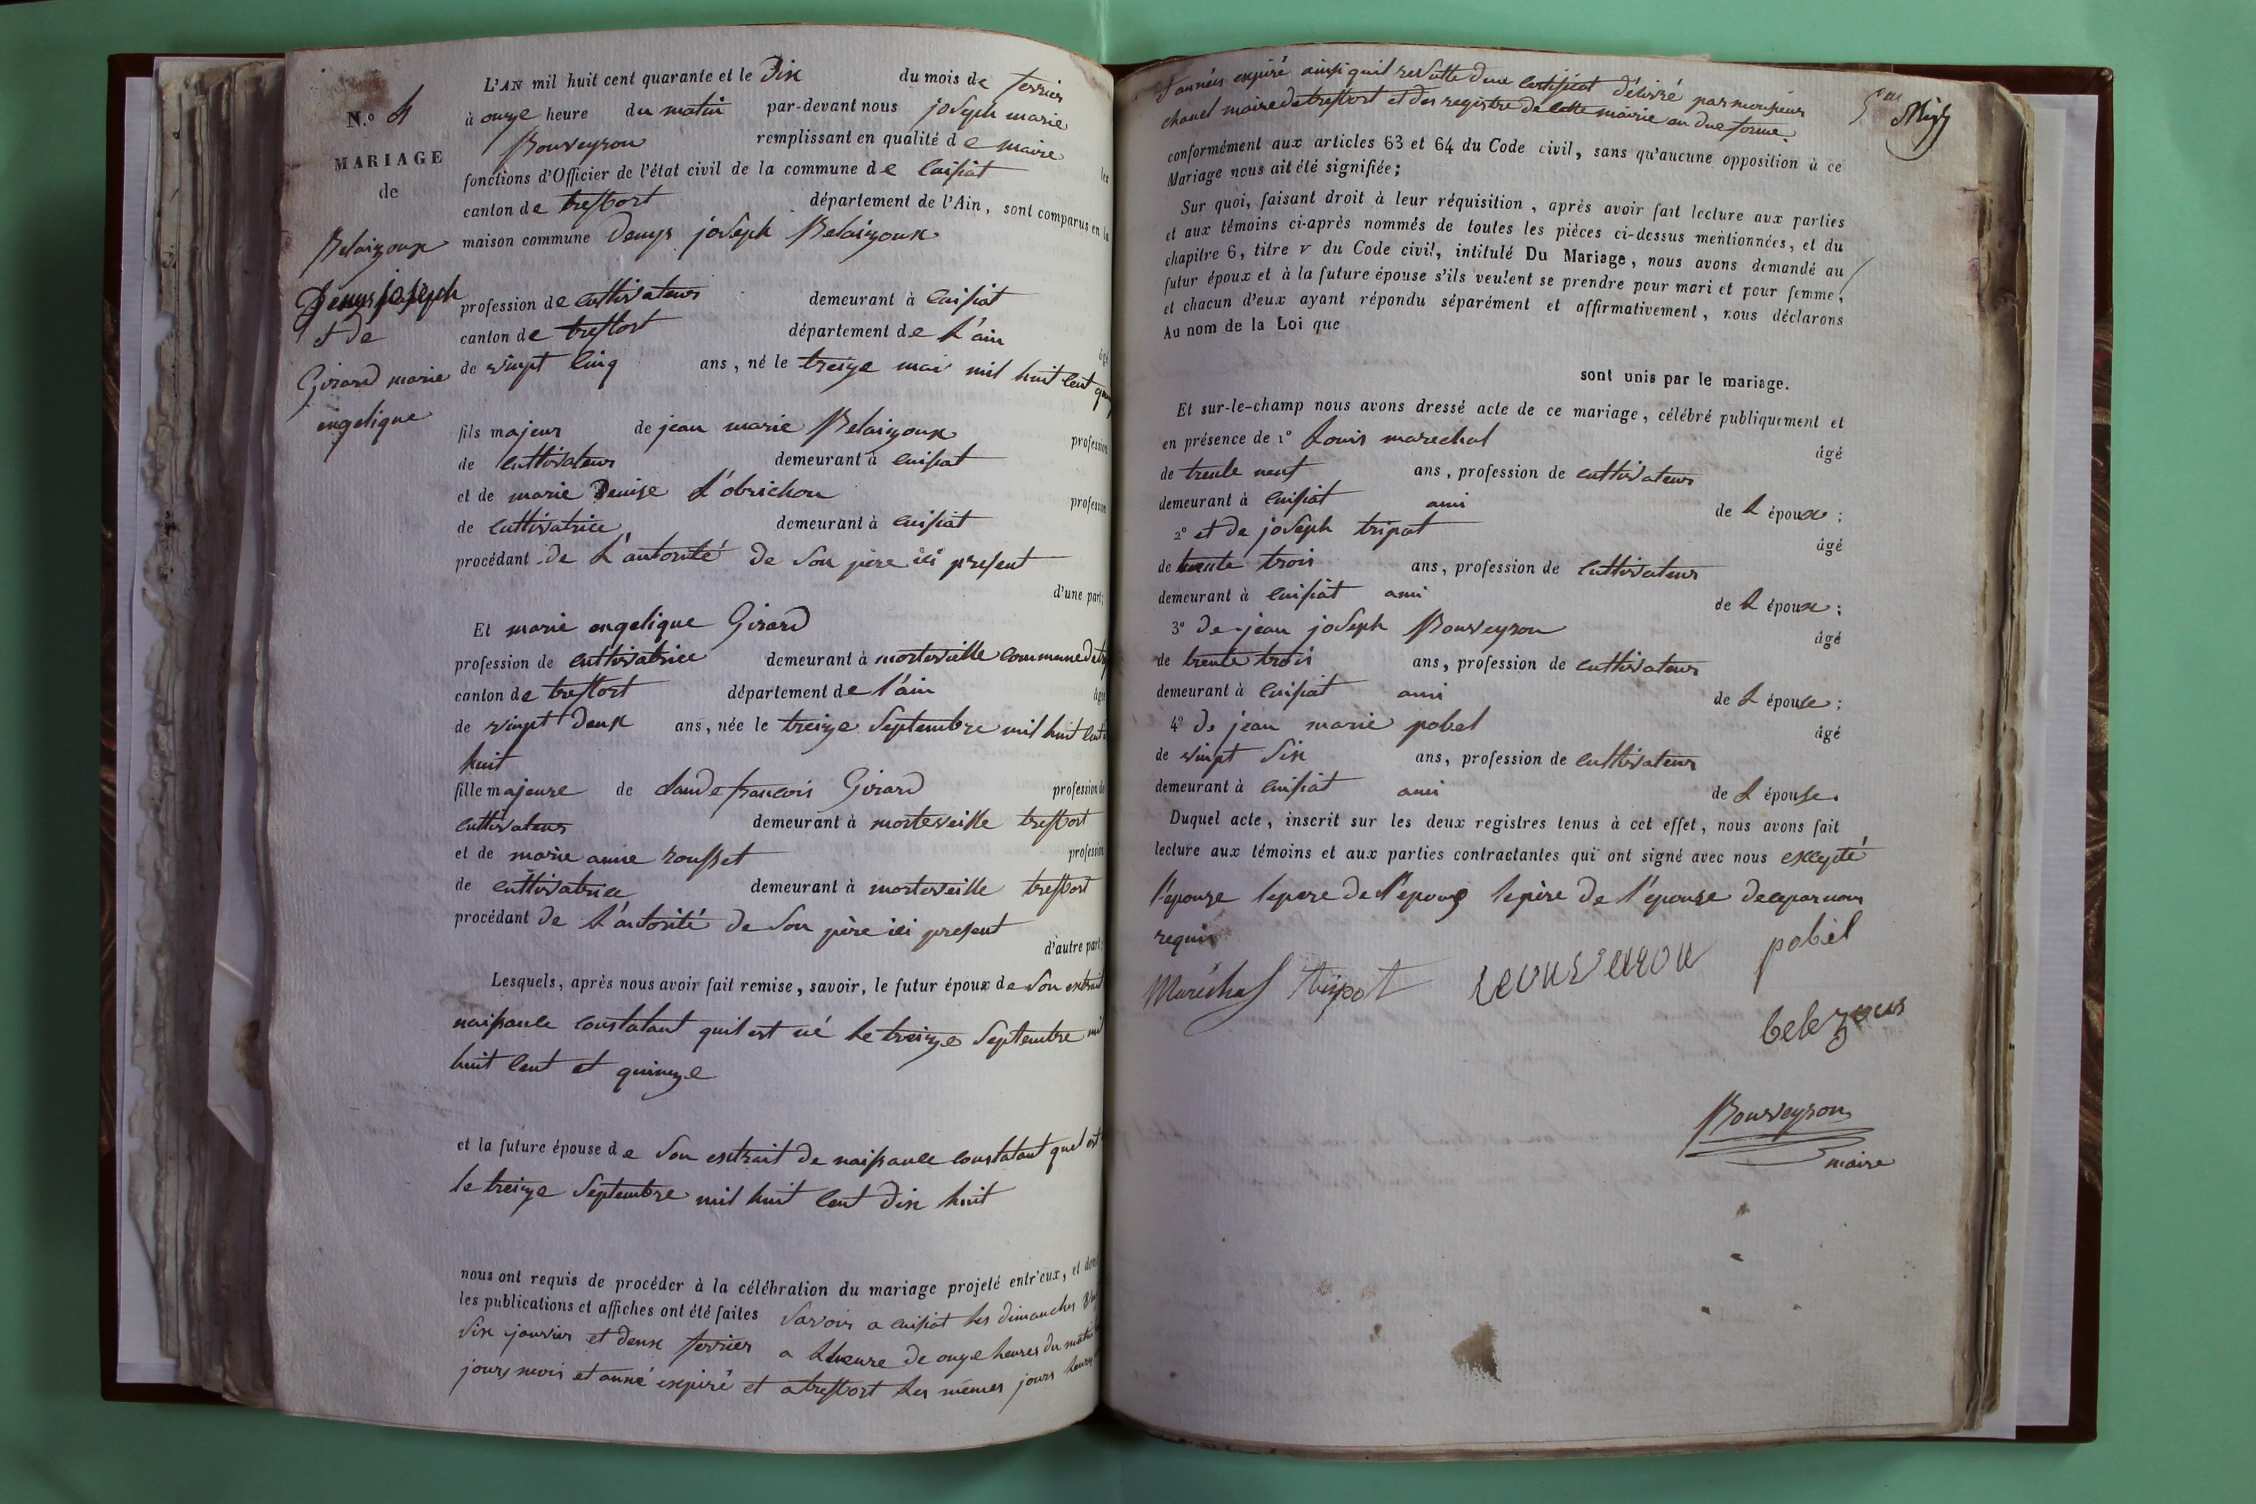 N.° 4
MARIAGE
de
Belaizoux
Denys joseph
et de
Girard marie
engelique
L'AN mil huit cent quarante et le Dix du mois de fevrier
à onze heure du matin par-devant nous joseph marie
Bouveyron remplissant en qualité de maire les
fonctions d'Officier de l'état civil de la commune de Cuisiat
canton de treffort département de l'Ain, sont comparus en la
maison commune Denys joseph Belaizoux
profession de cultivateur demeurant à Cuisiat
canton de treffort département de L'ain âgé
de vingt cinq ans, né le treize mai mil huit cent
fils majeur de jean marie Belaizoux profession
de cultivateur demeurant à cuisiat
et de marie Denise L'obrichon profession
de cultivatrice demeurant à cuisiat
procédant de L'autorité de son père ici present
d'une part;
Et marie engelique Girard
profession de cultivatrice demeurant à morteveille commune de
canton de treffort département de l'ain âgée
de vingt deux ans, née le treize Septembre mil huit cent
huit
fille majeure de claude francois Girard profession de
cultivateur demeurant à morteveille treffort
et de marie anne rousset profession
de cultivatrice demeurant à morteveille treffort
procédant de L'autorité de Son père ici present
d'autre part;
Lesquels, après nous avoir fait remise, savoir, le futur époux de Son extrait
naissance constatant quil est né le treize Septembre mil
huit cent et quinze
et la future épouse de Son extrait de naissance constatant quel est
le treize Septembre mil huit cent Dix huit
nous ont requis de procéder à la célébration du mariage projeté entr'eux, et dont
les publications et affiches ont été faites Savoir a cuisiat les dimanches
Six janvier et deux fevrier a L'heure de onze heures du matin
jours mois et anné expiré et a treffort les mémes jours heures
et années expiré ainsi quil resulte dun certificat délivré par monsieur
chanel maire de treffort et des registre de cette mairie en due forme.
conformément aux articles 63 et 64 du Code civil, sans qu'aucune opposition à ce
Mariage nous ait été signifiée;
Sur quoi, faisant droit à leur réquisition, après avoir fait lecture aux parties
et aux témoins ci-après nommés de toutes les pièces ci-dessus mentionnées, et du
chapitre 6, titre V du Code civil, intitulé Du Mariage, nous avons demandé au
futur époux et à la future épouse s'ils veulent se prendre pour mari et pour femme;
et chacun d'eux ayant répondu séparément et affirmativement, nous déclarons
Au nom de la Loi que
sont unis par le mariage.
Et sur-le-champ nous avons dressé acte de ce mariage, célébré publiquement et
en présence de 1° Louis marechal âgé
de trente neuf ans, profession de cultivateur
demeurant à Cuisiat ami de L époux;
2° et de joseph tripot âgé
de trente trois ans, profession de cultivateur
demeurant à Cuisiat ami de L époux;
3° de jean joseph Bouveyron âgé
de trente trois ans, profession de cultivateur
demeurant à Cuisiat ami de L épouse;
4° De jean marie pobel âgé
de vingt Six ans, profession de cultivateur
demeurant à Cuisiat ami de L épouse.
Duquel acte, inscrit sur les deux registres tenus à cet effet, nous avons fait
lecture aux témoins et aux parties contractantes qui ont signé avec nous excepté
l'épouze le pere de l'epoux le père de l'épouze de ce par nous
requis
Maréchal tripot Bouveiron pobel
belezoux
Bouveyron
maire